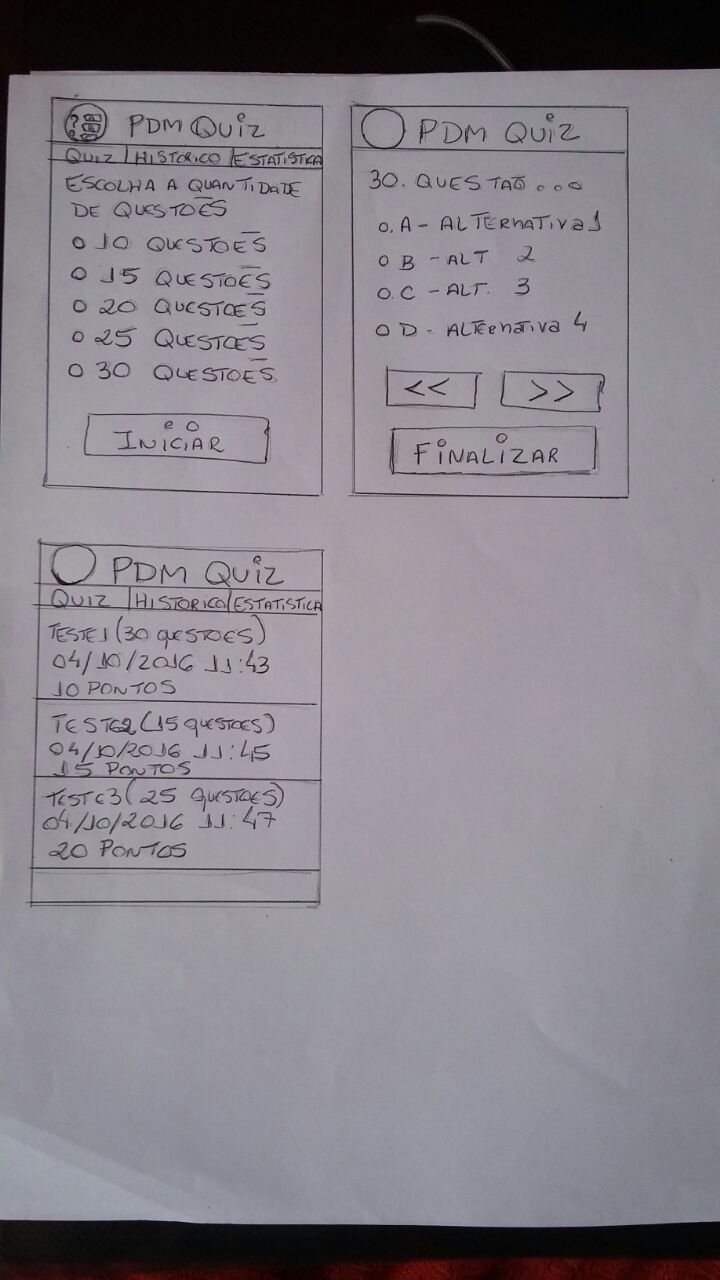 PDM QUIZ
QUIZ | HISTORICO | ESTATISTICA
ESCOLHA A QUANTIDADE
DE QUESTOES
O 10 QUESTOES
O 15 QUESTOES
O 20 QUESTOES
O 25 QUESTOES
O 30 QUESTOES
INICIAR
PDM QUIZ
30. QUESTAO...
O. A - ALTERNATIVA 1
O B - ALT 2
O. C - ALT. 3
O D - ALTERNATIVA 4
<< >>
FINALIZAR
PDM QUIZ
QUIZ | HISTORICO | ESTATISTICA
TESTE1 (30 QUESTOES)
04/10/2016 11:43
10 PONTOS
TESTE2 (15 QUESTOES)
04/10/2016 11:45
15 PONTOS
TESTE3 (25 QUESTOES)
04/10/2016 11:47
20 PONTOS